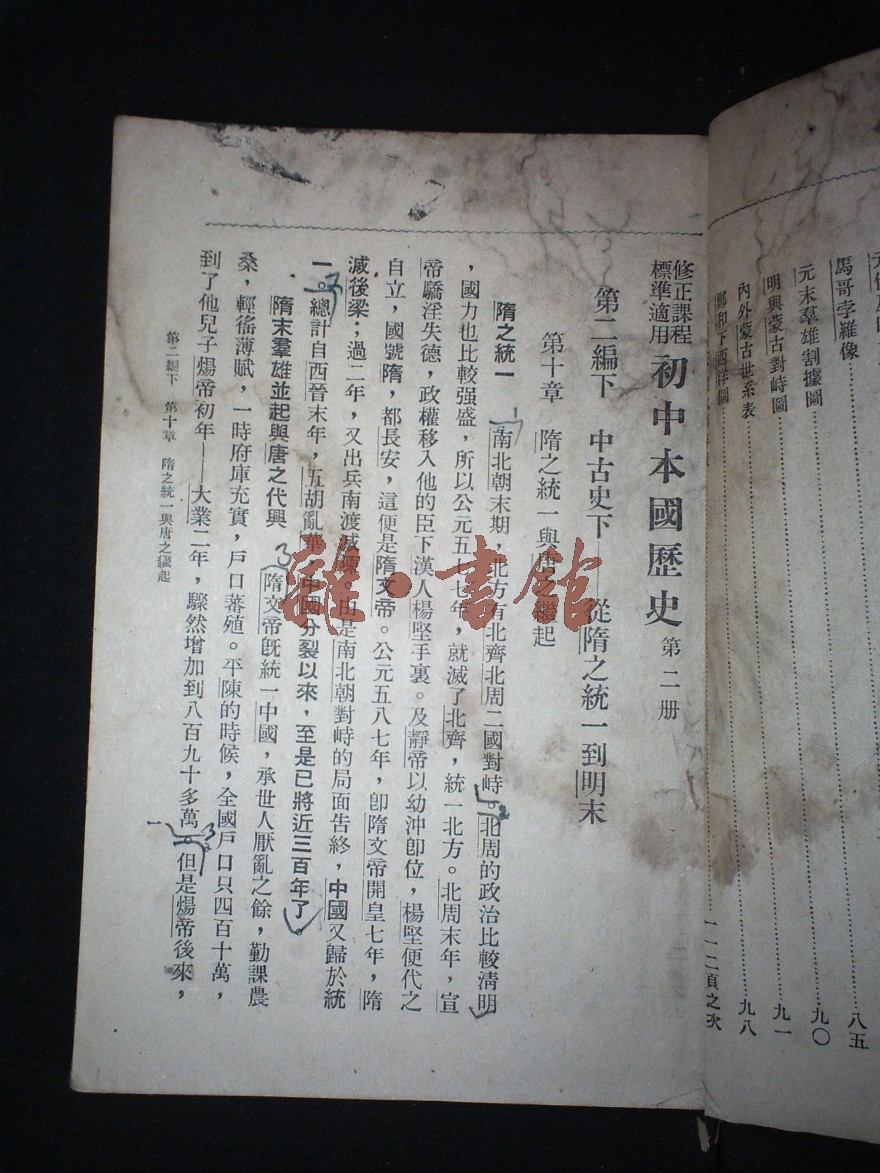 修正課程標準適用 初中本國歷史 第二册
第二編下 中古史下——從隋之統一到明末
第十章 隋之統一與唐之繼起
隋之統一 南北朝末期，北方有北齊北周二國對峙。北周的政治比較清明
，國力也比較强盛，所以公元五七七年，就滅了北齊，統一北方。北周末年，宣
帝驕淫失德，政權移入他的臣下漢人楊堅手裏。及靜帝以幼沖卽位，楊堅便代之
自立，國號隋，都長安，這便是隋文帝。公元五八七年，卽隋文帝開皇七年，隋
滅後梁；過二年，又出兵南渡滅陳。由是南北朝對峙的局面告終，中國又歸於統
一。總計自西晉末年，五胡亂華，中國分裂以來，至是已將近三百年了。
隋末羣雄並起與唐之代興 隋文帝旣統一中國，承世人厭亂之餘，勤課農
桑，輕徭薄賦，一時府庫充實，戶口蕃殖。平陳的時候，全國戶口只四百十萬，
到了他兒子煬帝初年——大業二年，驟然增加到八百九十多萬。但是煬帝後來，
第二編下 第十章 隋之統一與唐之繼起
一
雜·書館
馬哥孛羅像 八五
元末羣雄割據圖 九〇
明與蒙古對峙圖 九一
內外蒙古世系表 九八
鄭和下西洋圖 一一二頁之次